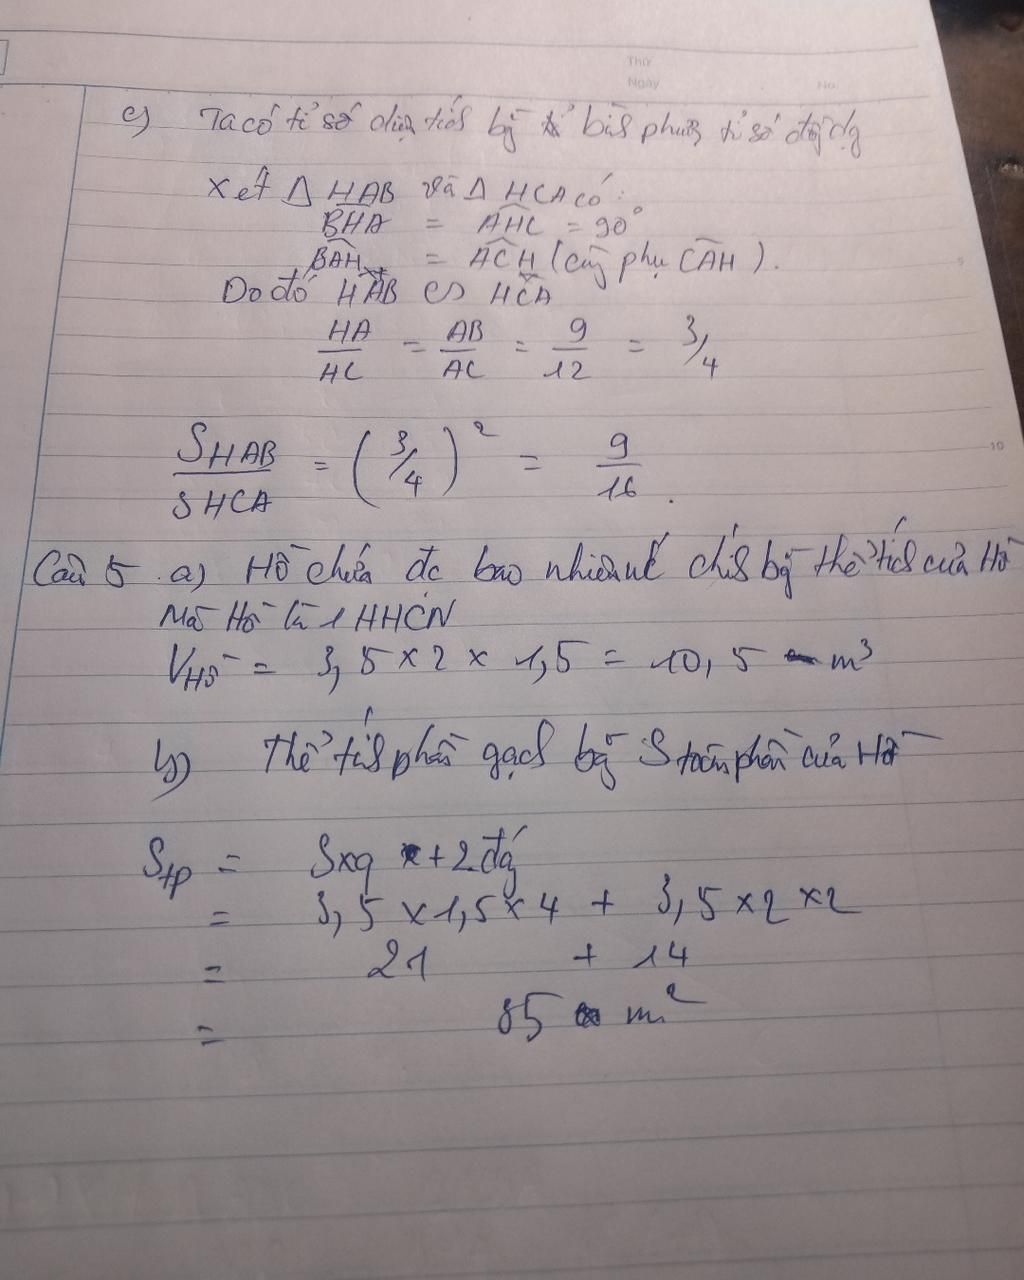 Thứ
Ngày No.
c) Ta có tỉ số diện tích bằng bình phương tỉ số đồng dạng
Xét Δ HAB và Δ HCA có:
BHA = AHC = 90°
BAH = ACH (cùng phụ CAH).
Do đó HAB ∽ HCA
HA/HC = AB/AC = 9/12 = 3/4
SHAB/SHCA = (3/4)² = 9/16.
10
Câu 5 a) Hồ chứa đc bao nhiêu chính bằng thể tích của Hồ
Mà Hồ là 1 HHCN
VHồ = 3,5 x 2 x 1,5 = 10,5 m³
b) Thể tích phần gạch bằng S toàn phần của Hồ
Stp = Sxq + 2 đáy
= 3,5 x 1,5 x 4 + 3,5 x 2 x 2
= 21 + 14
= 35 m²